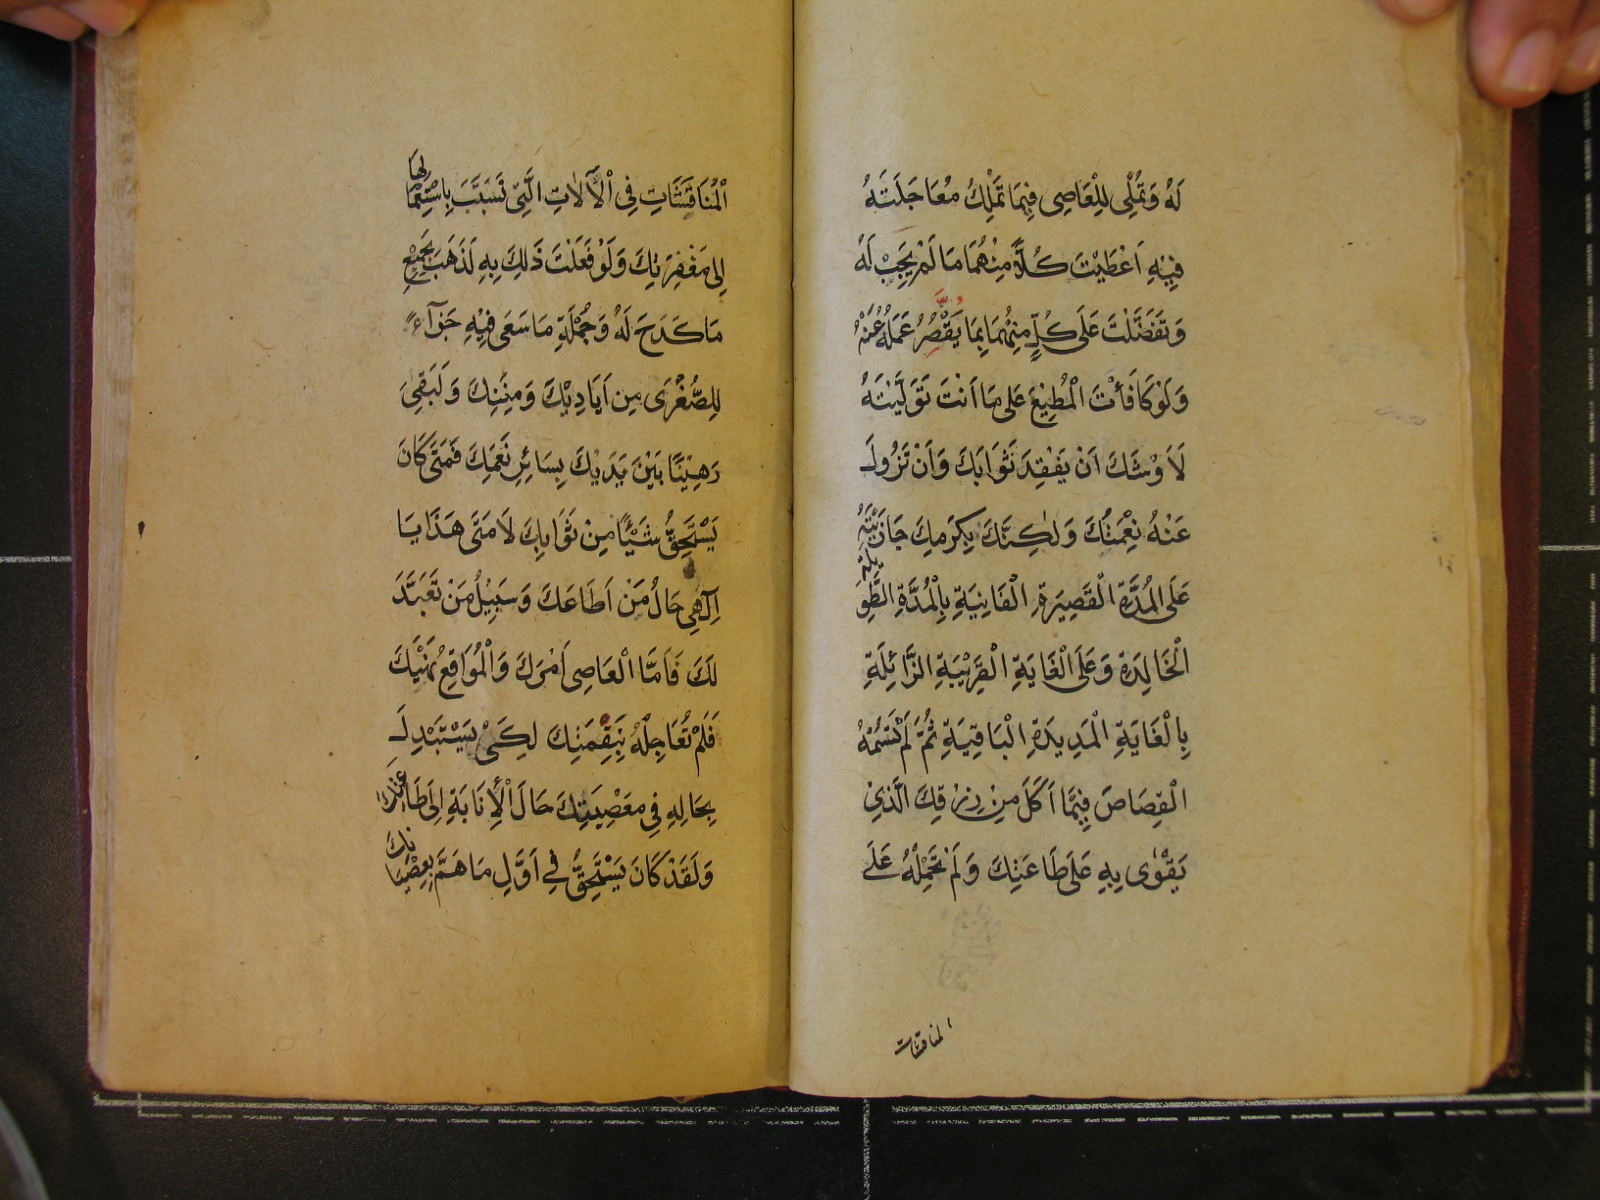 لَهُ وَتُمْلِي لِلْعَاصِي فِيمَا تَمْلِكُ مُعَاجَلَتَهُ
فِيْهِ اَعْطَيْتَ كُلًّا مِنْهُمَا مَا لَمْ يَجِبْ لَهُ
وَتَفَضَّلْتَ عَلَى كُلٍّ مِنْهُمَا بِمَا يَقْصُرُ عَمَلُهُ عَنْهُ
وَلَوْ كَافَأْتَ الْمُطِيْعَ عَلَى مَا اَنْتَ تَوَلَّيْتَهُ
لَاَوْشَكَ اَنْ يَفْقِدَ ثَوَابَكَ وَاَنْ تَزُولَ
عَنْهُ نِعْمَتُكَ وَلٰكِنَّكَ بِكَرَمِكَ جَازَيْتَهُ
عَلَى الْمُدَّةِ الْقَصِيْرَةِ الْفَانِيَةِ بِالْمُدَّةِ الطَّوِيلَةِ
الْخَالِدَةِ وَعَلَى الْغَايَةِ الْقَرِيْبَةِ الزَّائِلَةِ
بِالْغَايَةِ الْمَدِيدَةِ الْبَاقِيَةِ ثُمَّ لَمْ تَسُمْهُ
الْقِصَاصَ فِيْمَا اَكَلَ مِنْ رِزْقِكَ الَّذِيْ
يَقْوٰى بِهِ عَلَى طَاعَتِكَ وَلَمْ تَحْمِلْهُ عَلَى
المناقشات
الْمُنَاقَشَاتِ فِي الْآلَاتِ الَّتِيْ تَسَبَّبَ بِاسْتِعْمَالِهَا
اِلَى مَغْفِرَتِكَ وَلَوْ فَعَلْتَ ذٰلِكَ بِهِ لَذَهَبَ بِجَمِيْعِ
مَا كَدَحَ لَهُ وَجُمْلَةِ مَا سَعَى فِيْهِ جَزَآءً
لِلصُّغْرَى مِنْ اَيَادِيْكَ وَمِنَنِكَ وَلَبَقِيَ
رَهِيْنًا بَيْنَ يَدَيْكَ بِسَائِرِ نِعَمِكَ فَمَتَى كَانَ
يَسْتَحِقُّ شَيْئًا مِنْ ثَوَابِكَ لَا مَتَى هَذَا يَا
اِلٰهِي حَالُ مَنْ اَطَاعَكَ وَسَبِيْلُ مَنْ تَعَبَّدَ
لَكَ فَاَمَّا الْعَاصِي اَمْرَكَ وَالْمُوَاقِعُ نَهْيَكَ
فَلَمْ تُعَاجِلْهُ بِنَقِمَتِكَ لِكَيْ يَسْتَبْدِلَ
بِحَالِهِ فِي مَعْصِيَتِكَ حَالَ الْإِنَابَةِ اِلَى طَاعَتِكَ
وَلَقَدْ كَانَ يَسْتَحِقُّ فِي اَوَّلِ مَا هَمَّ بِعِصْيَانِكَ